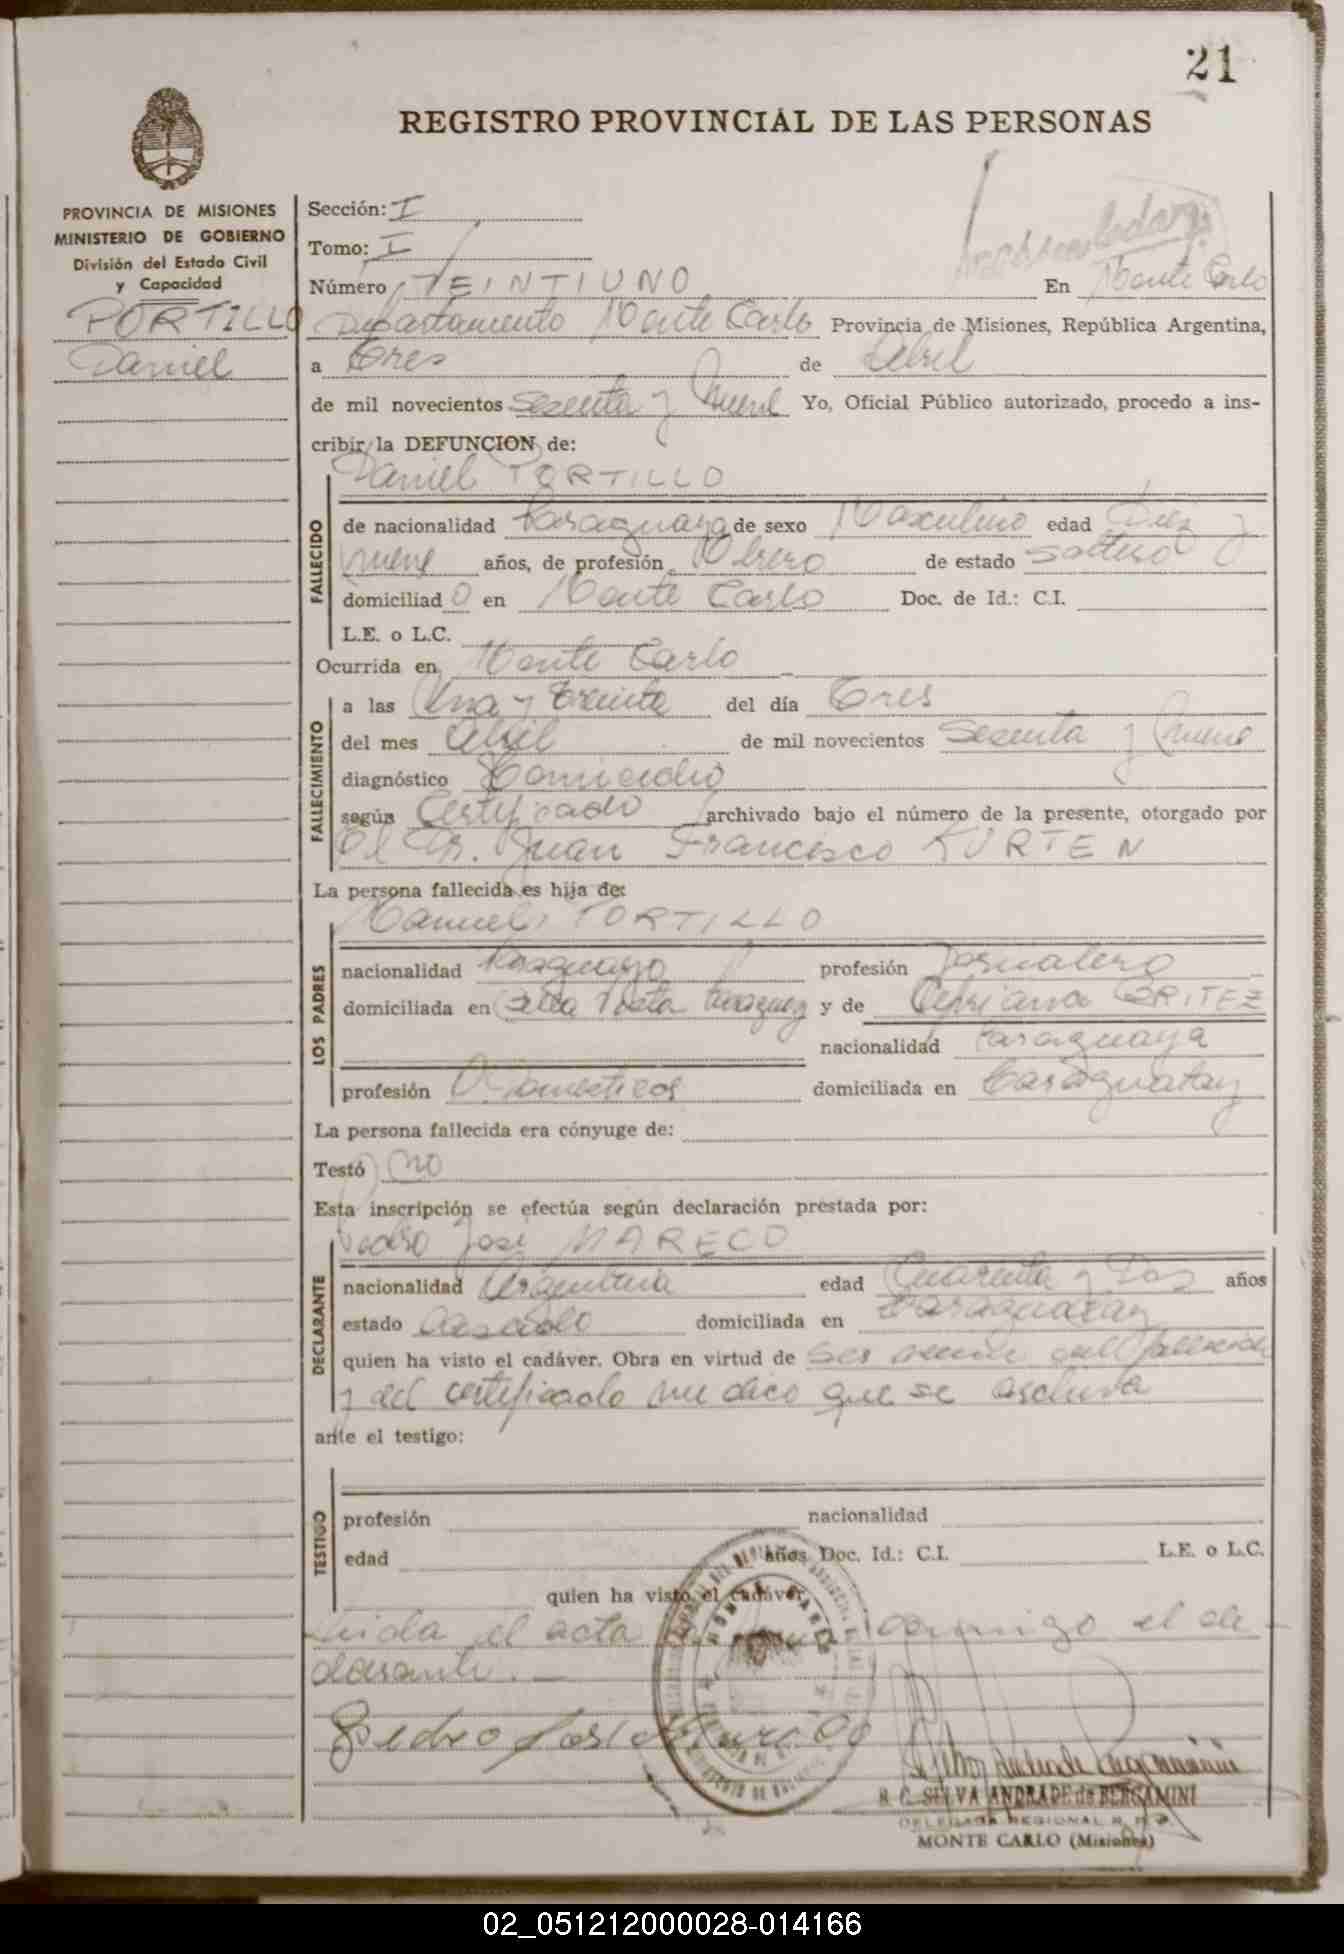 21
REGISTRO PROVINCIAL DE LAS PERSONAS
PROVINCIA DE MISIONES
MINISTERIO DE GOBIERNO
División del Estado Civil
y Capacidad
PORTILLO
Daniel
Sección: I
Tomo: I
Número VEINTIUNO En Monte Carlo
Departamento Monte Carlo Provincia de Misiones, República Argentina,
a Tres de Abril
de mil novecientos Sesenta y Nueve Yo, Oficial Público autorizado, procedo a ins-
cribir la DEFUNCION de:
Daniel PORTILLO
FALLECIDO
de nacionalidad Paraguaya de sexo Masculino edad Diez y
nueve años, de profesión Obrero de estado soltero
domiciliado en Monte Carlo Doc. de Id.: C.I.
L.E. o L.C.
Ocurrida en Monte Carlo
FALLECIMIENTO
a las Una y Treinta del día Tres
del mes Abril de mil novecientos Sesenta y Nueve
diagnóstico Homicidio
según Certificado archivado bajo el número de la presente, otorgado por
el Dr. Juan Francisco KURTEN
La persona fallecida es hija de:
Manuel PORTILLO
LOS PADRES
nacionalidad Paraguayo profesión Jornalero
domiciliada en y de Cipriana BRITEZ
nacionalidad Paraguaya
profesión Q. Domesticos domiciliada en Caraguatay
La persona fallecida era cónyuge de:
Testó no
Esta inscripción se efectúa según declaración prestada por:
Pedro José MARECO
DECLARANTE
nacionalidad Argentina edad Cuarenta y Dos años
estado Casado domiciliada en Caraguatay
quien ha visto el cadáver. Obra en virtud de ser del fallecido
y del certificado medico que se archiva
ante el testigo:
TESTIGO
profesión nacionalidad
edad años Doc. Id.: C.I. L.E. o L.C.
quien ha visto el cadáver
Leida el acta conmigo el de-
clarante.—
Pedro José Mareco
R. C. SELVA ANDRADE de BERGAMINI
DELEGADA REGIONAL R. P. P.
MONTE CARLO (Misiones)
02_051212000028-014166